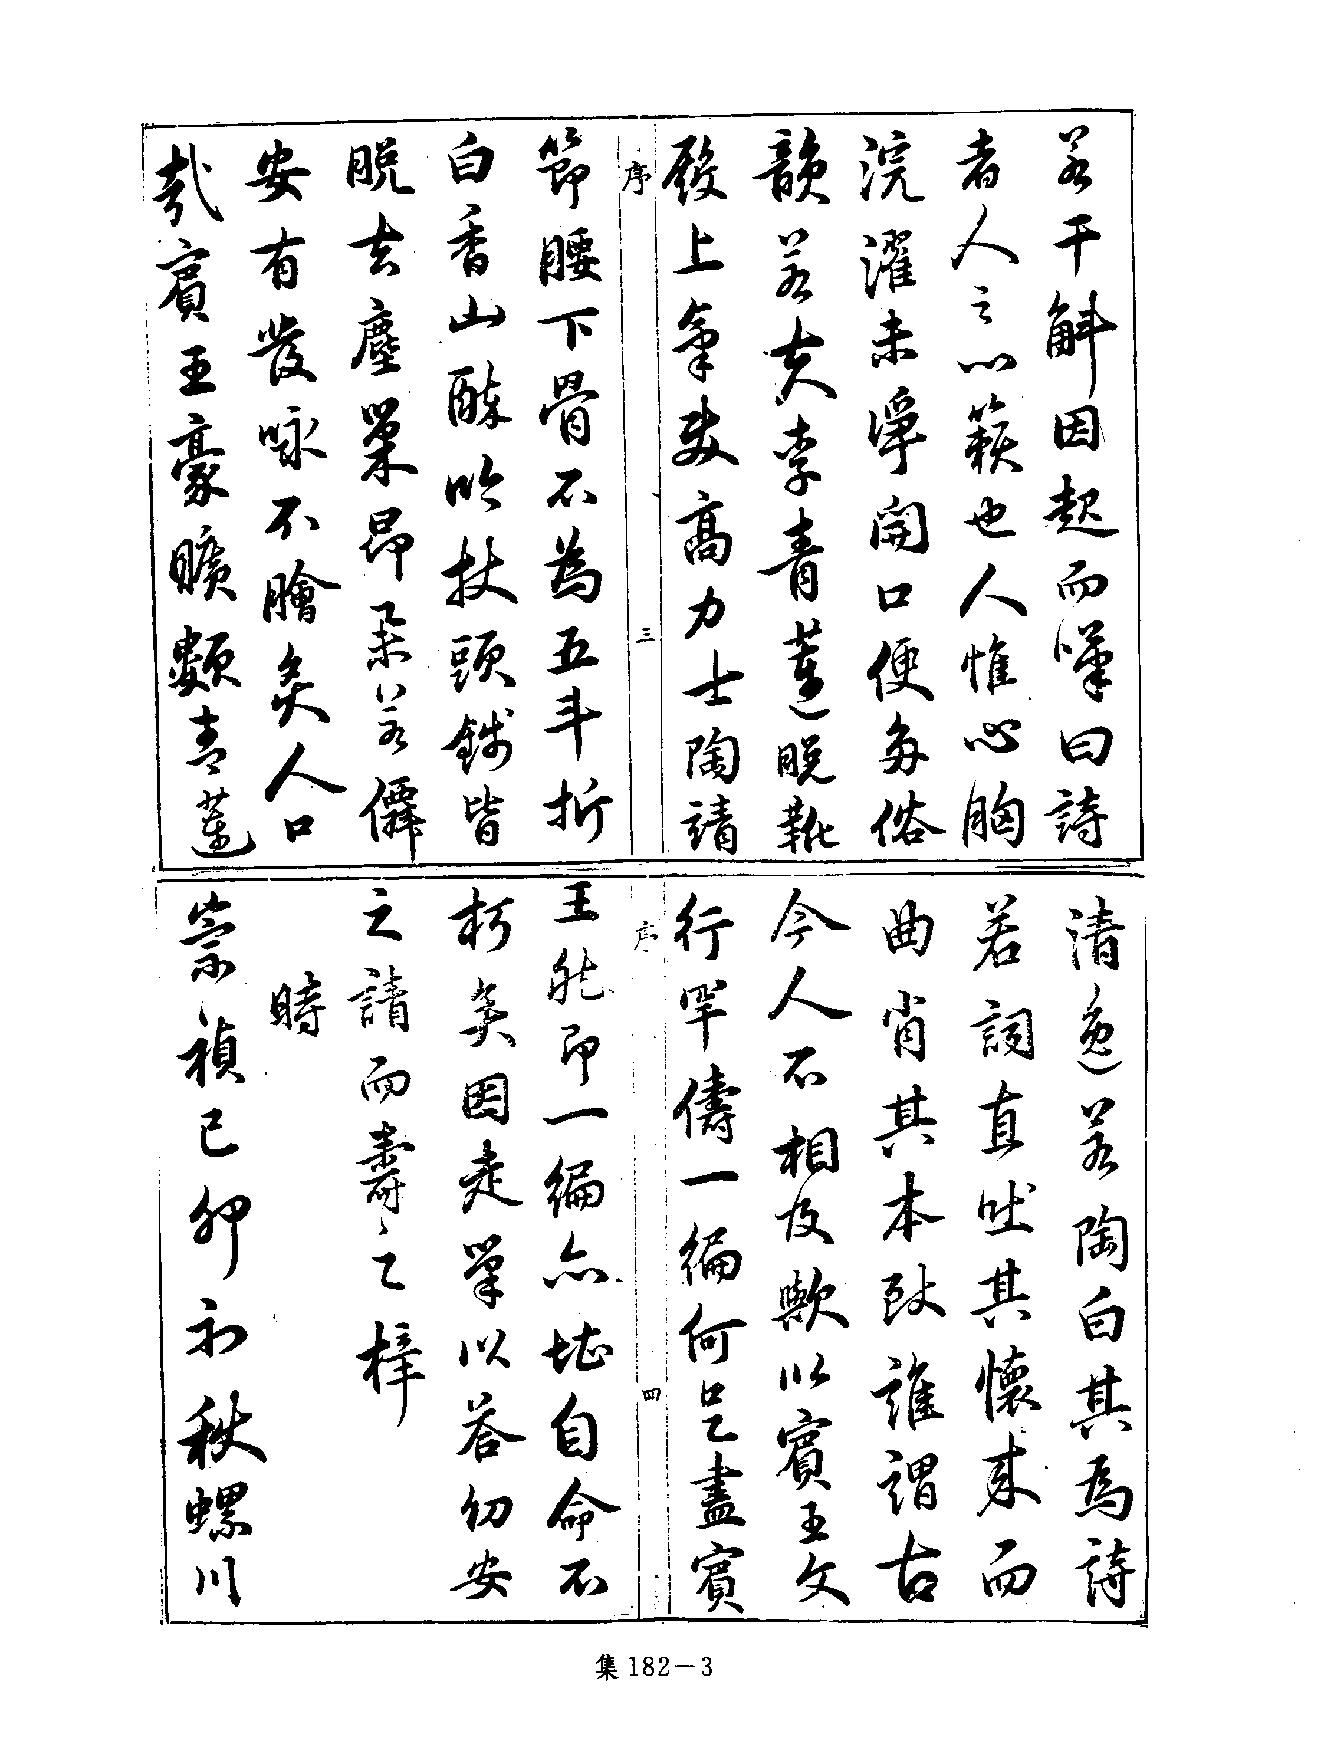 若干斛因起而嘆曰詩
者人之心籟也人惟心胸
浣濯未淨開口便多俗
韻若夫李青蓮脫靴
殿上氣奰高力士陶靖
序
三
節腰下骨不為五斗折
白香山醉吟杖頭錢皆
脫去塵巢昂霄若僊
安有發咏不膾炙人口
哉賓王豪曠類青蓮
清逸若陶白其為詩
若詞直吐其懷來而
曲肖其本致誰謂古
今人不相及歟以賓王文
行罕儔一編何足盡賓
序
四
王然即一編亦堪自命不
朽矣因走筆以答仞安
之請而壽之梓
時
崇禎己卯初秋螺川
集 182－3